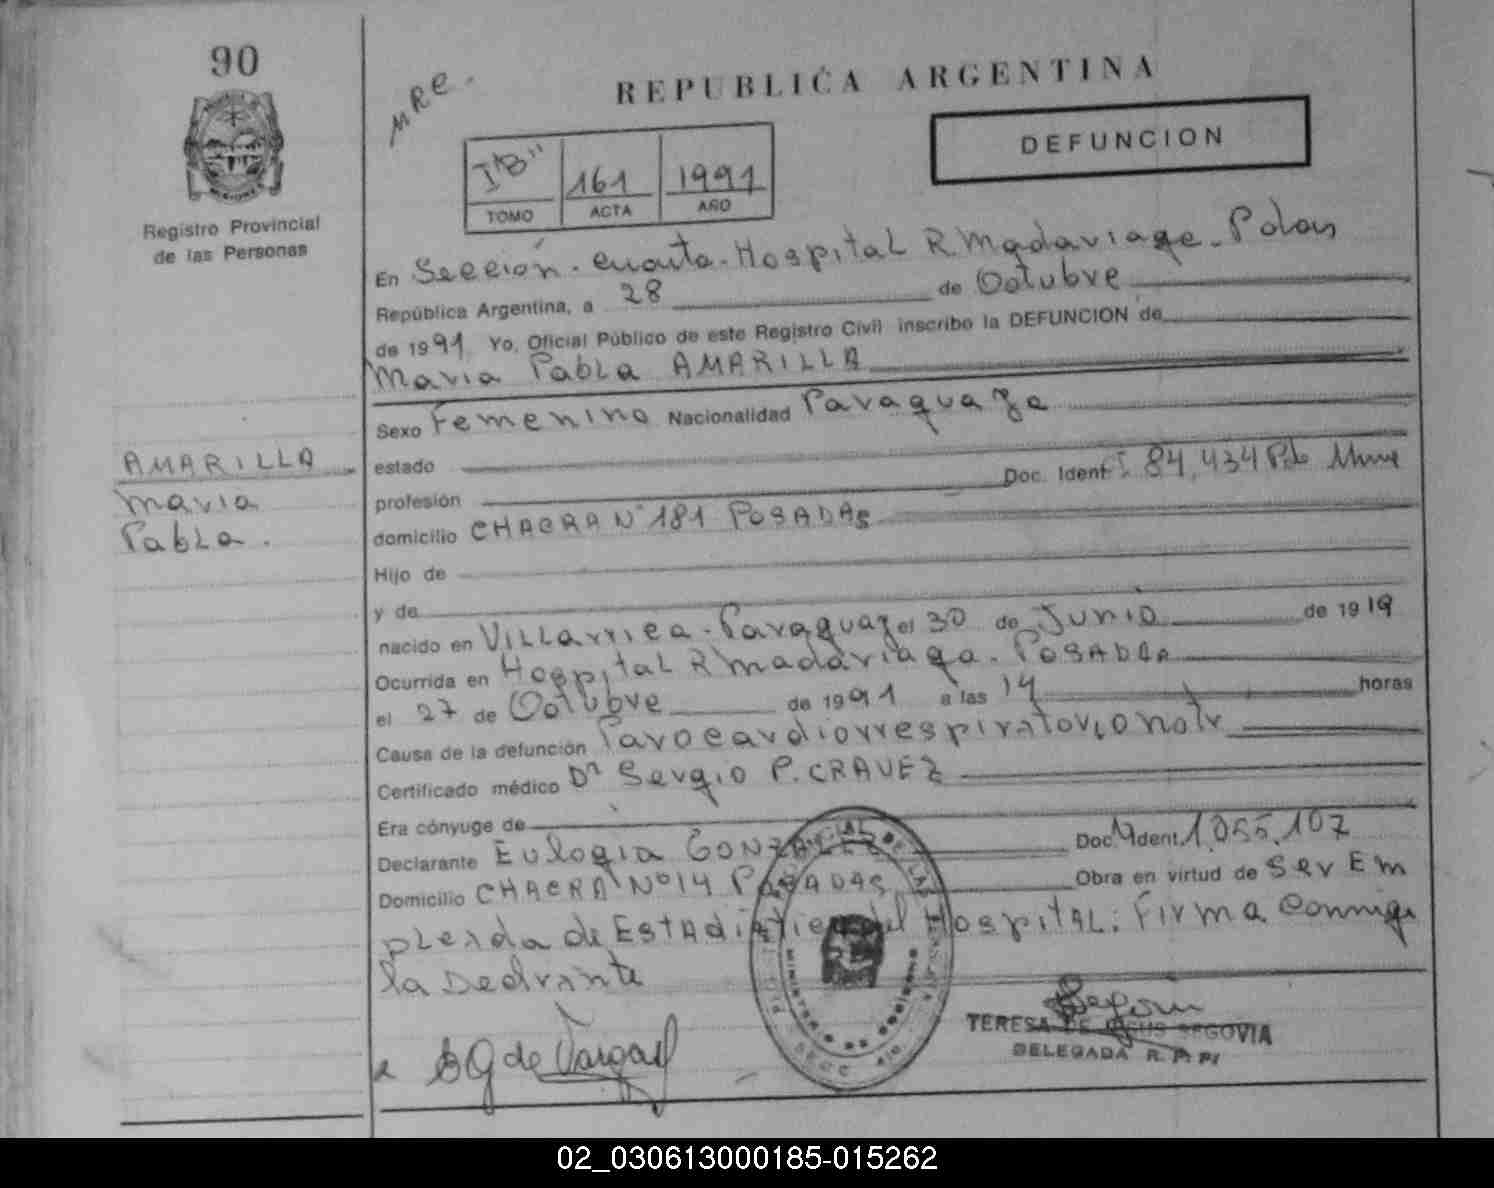 90
Registro Provincial
de las Personas
MRE.
REPUBLICA ARGENTINA
DEFUNCION
I"B" 161 1991
TOMO ACTA AÑO
En Sección cuarta Hospital R Madariaga
República Argentina, a 28 de Octubre
de 1991 Yo, Oficial Público de este Registro Civil inscribo la DEFUNCION de
Maria Pabla AMARILLA
Sexo Femenino Nacionalidad Paraguaya
AMARILLA
Maria
Pabla.
estado
profesión Doc. Ident. 84,434
domicilio CHACRA N° 181 POSADAS
Hijo de
y de
nacido en Villarrica - Paraguay el 30 de Junio de 1919
Ocurrida en Hospital R Madariaga. POSADAS
el 27 de Octubre de 1991 a las 14 horas
Causa de la defunción Parocardiorrespiratorio
Certificado médico Dr Sergio P. CRAVEZ
Era cónyuge de
Declarante Eulogia GONZALEZ Doc. Ident. 1,055,107
Domicilio CHACRA N° 14 POSADAS Obra en virtud de Ser Em
pleada de Estadistica del Hospital: Firma Conmigo
la
B G de Vargas
TERESA DE JESUS SEGOVIA
DELEGADA R. P. P.
02_030613000185-015262